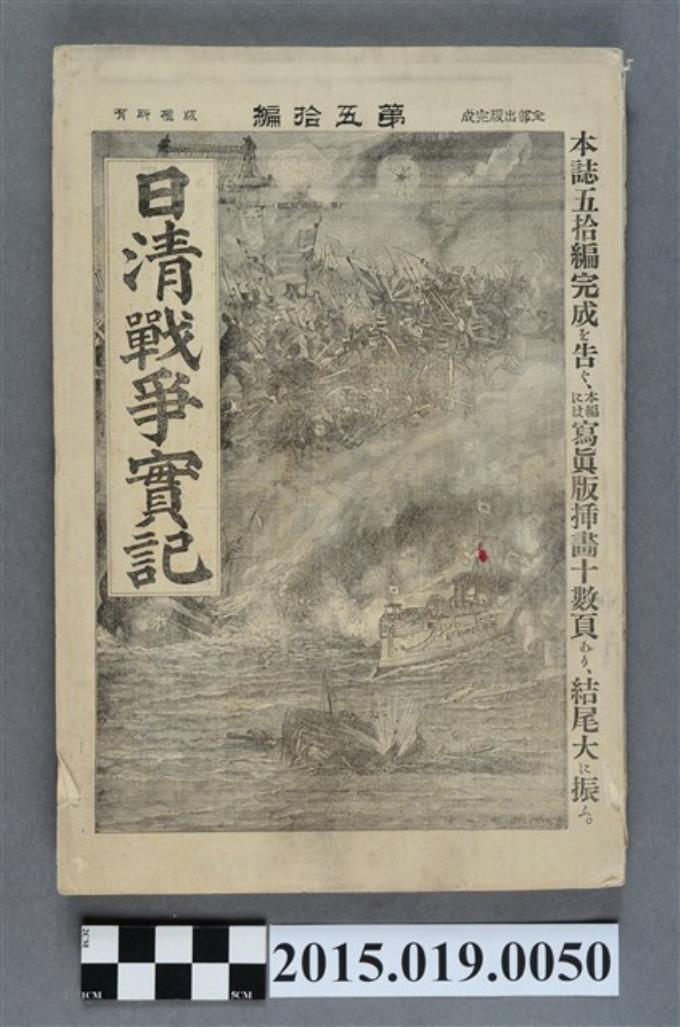 全部出版完成
第五拾編
版權所有
本誌五拾編完成を告ぐ、本編には寫眞版挿畵十數頁あり、結尾大に振ふ。
日清戰爭實記
2CM
1CM
5CM
2015.019.0050